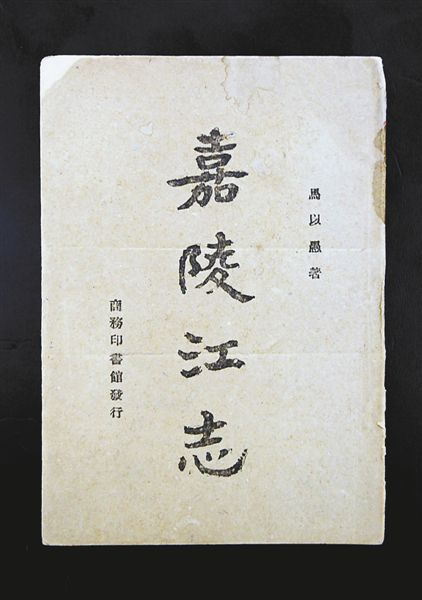 馬以愚著
嘉陵江志
商務印書館發行